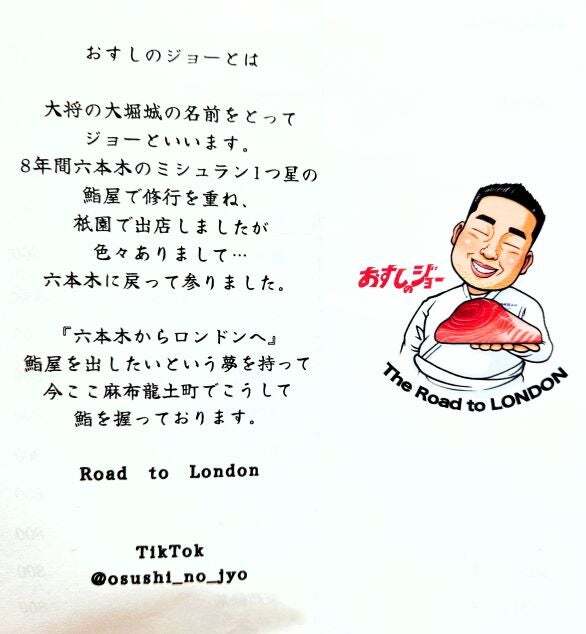 おすしのジョーとは
大将の大堀城の名前をとって
ジョーといいます。
8年間六本木のミシュラン1つ星の
鮨屋で修行を重ね、
祇園で出店しましたが
色々ありまして…
六本木に戻って参りました。
『六本木からロンドンへ』
鮨屋を出したいという夢を持って
今ここ麻布龍土町でこうして
鮨を握っております。
Road to London
TikTok
@osushi_no_jyo
おすしのジョー
The Road to LONDON